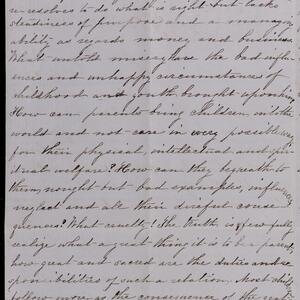 resolutions to do what is right but lacks
steadiness of purpose and a managing
ability as regards money and business.
What untold misery have the bad influ-
ences and unhappy circumstances of
childhood and youth brought upon him.
How can parents bring children into the
world and not care in every possible way
for their physical, intellectual and spir-
itual welfare? How can they bequeath to
them, nought but bad examples, influence
neglect and all their direful conse
quences? What cruelty! The truth is, few fully
realize what a great thing it is to be a parent,
how great and sacred are the duties and re-
sponsibilities of such a relation. Most children
follow more as the consequence of the great